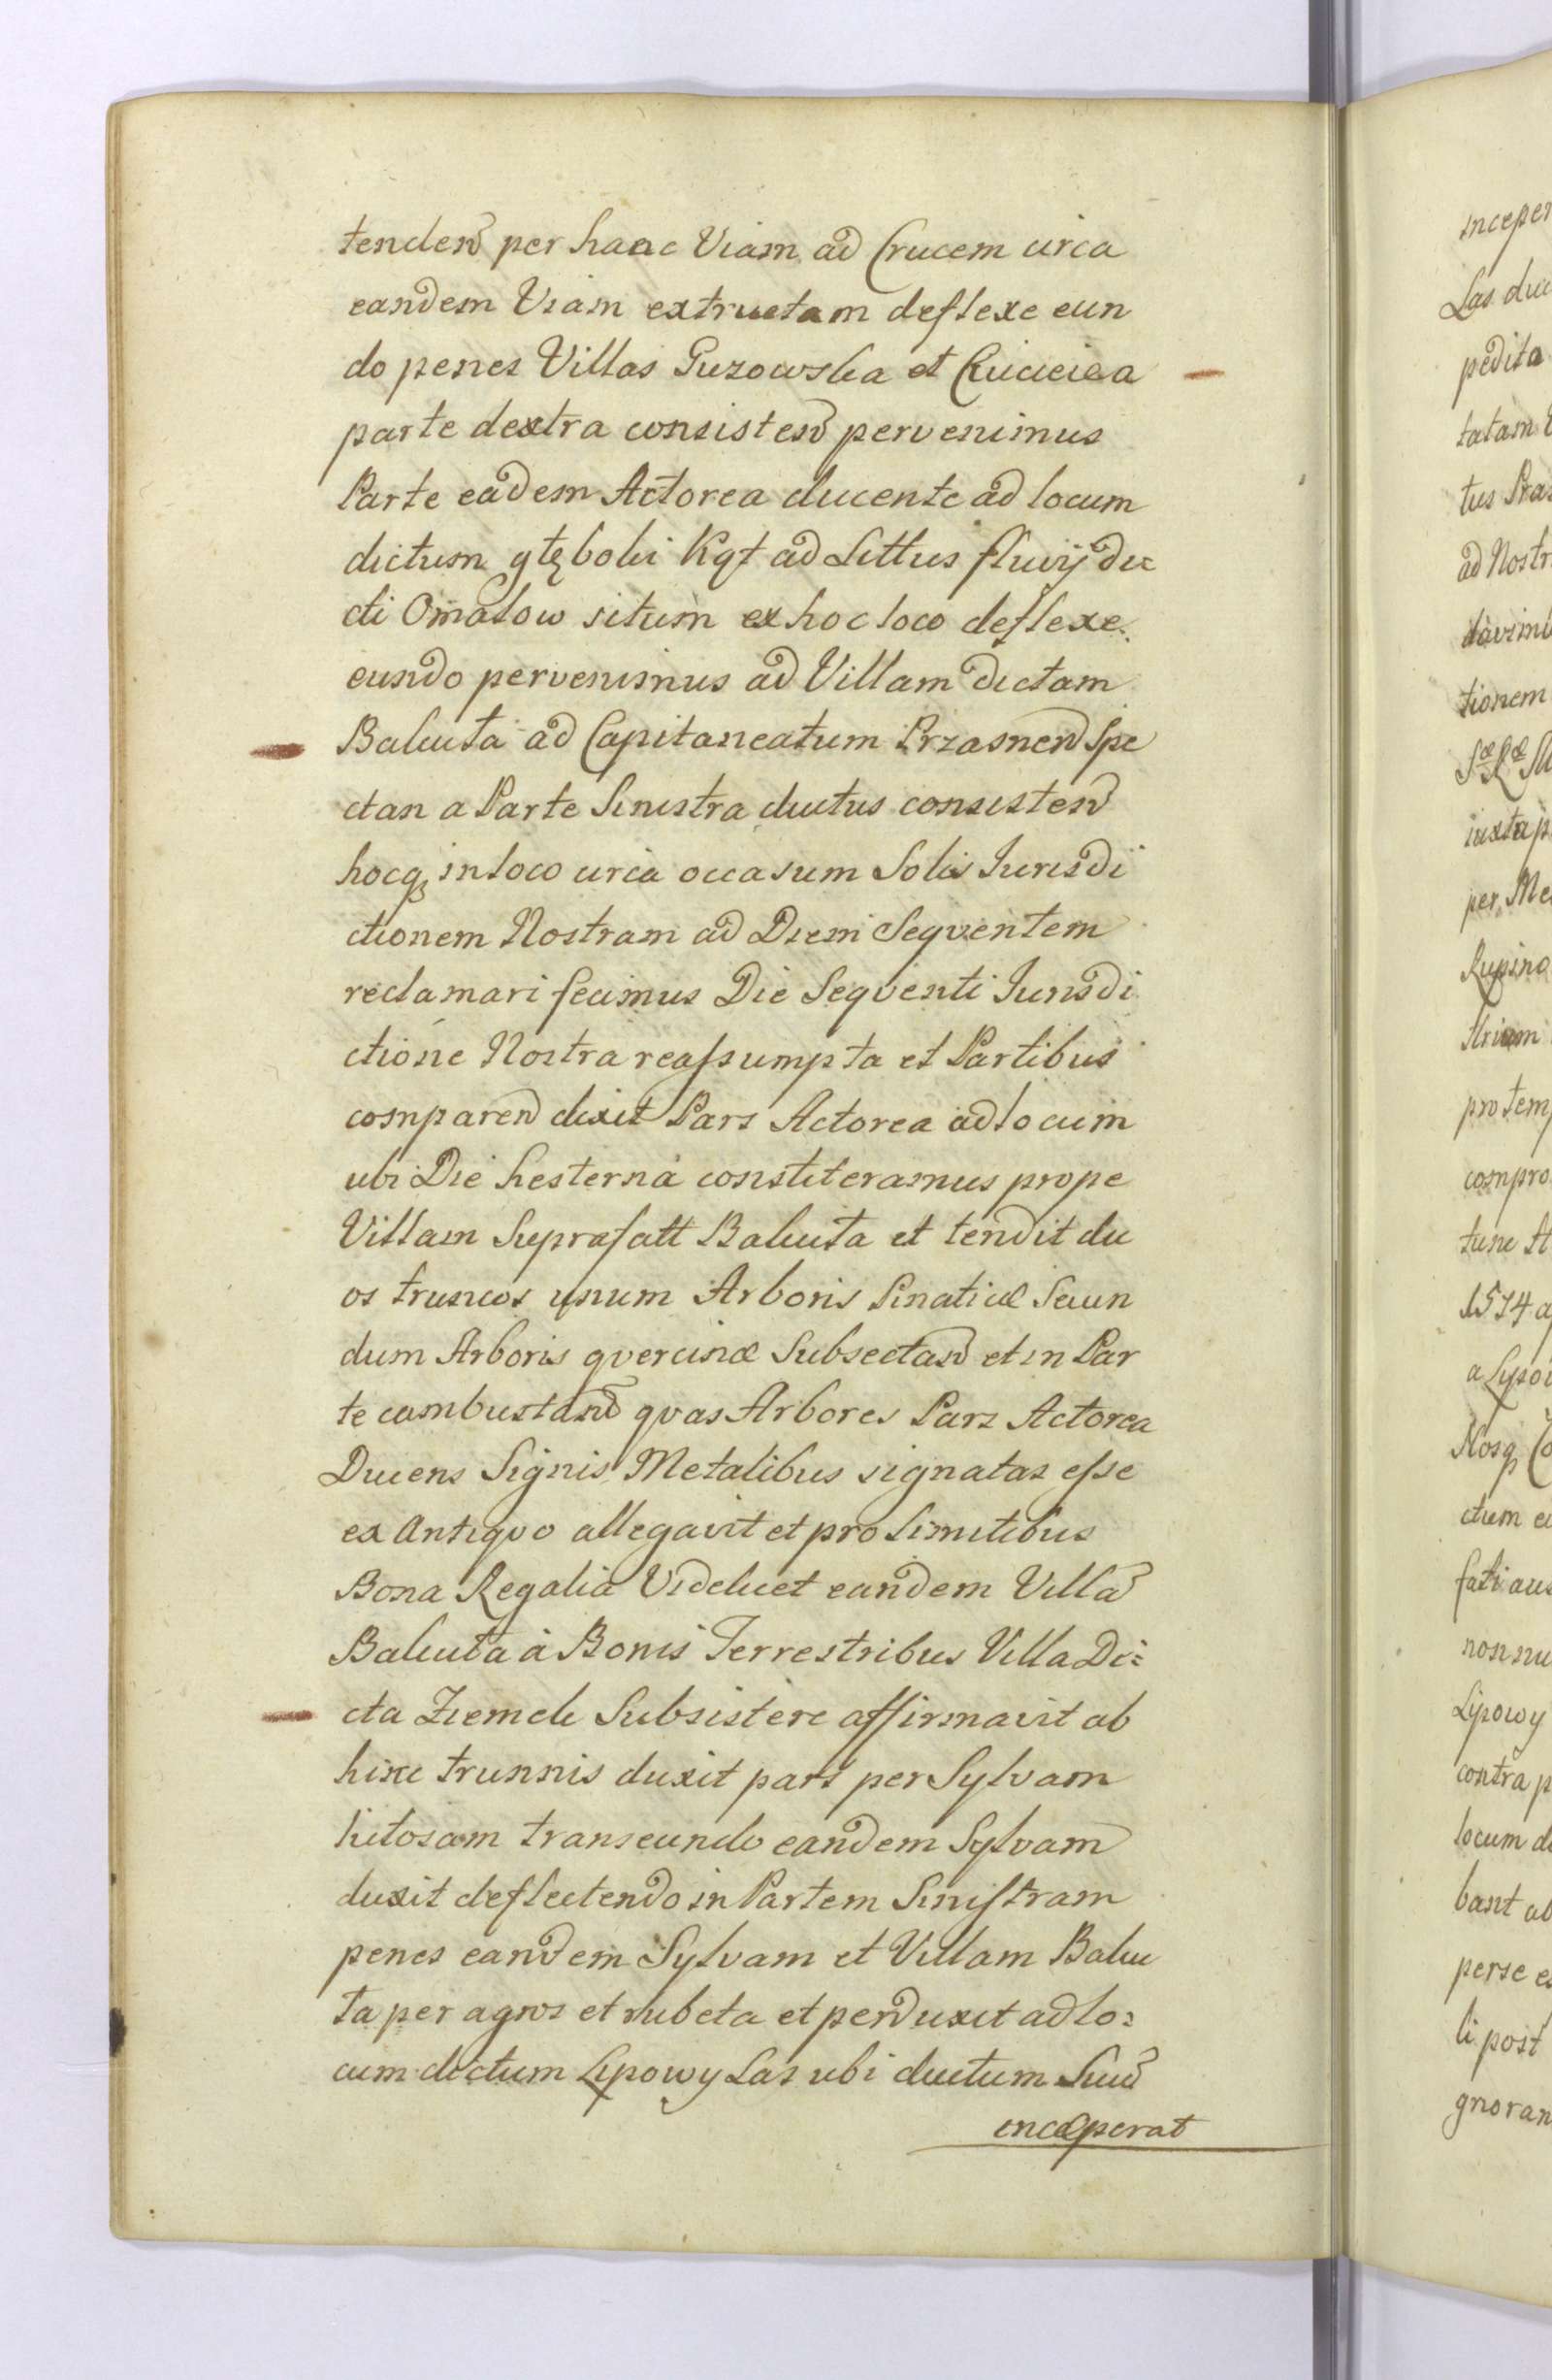 tendend per hanc Viam ad Crucem circa
eandem Viam extructam deflexe eun
do penes Villas Guzowska et
parte dextra consistend pervenimus
Parte eadem Actorea ducente ad locum
dictum głęboki Kąt ad Littus fluvij di=
cti Omalow situm ex hoc loco deflexe
eundo pervenimus ad Villam dictam
Bakuta ad Capitaneatum Przasnend Spe
ctan a Parte Sinistra ductus consistend
hocq in loco circa occasum Solis Iurisdi
ctionem Nostram ad Diem Seqventem
reclamari fecimus Die Seqventi Iurisdi
ctione Nostra reassumpta et Partibus
comparend dixit Pars Actorea ad locum
ubi Die hesterna constiteramus prope
Villam Suprafatt Bakuta et tendit du
os truncos unum Arboris Pinaticæ Secun
dum Arboris qvercinæ Subsectand et in Par
te combustand qvas Arbores Pars Actorea
Ducens Signis Metalibus signatas esse
ex Antiqvo allegavit et pro Limitibus
Bona Regalia Videlicet eandem Villā
Bakuta à Bonis Terrestribus Villa Di=
cta Ziemele Subsistere affirmavit ab
hisce trunnis duxit pars per Sylvam
lutosam transeundo eandem Sylvam
duxit deflectendo in Partem Sinistram
penes eandem Sylvam et Villam Baku
ta per agros et rubeta et perduxit ad lo=
cum dictum Lipowy Las ubi ductum Suū
incæperat
inceper
Las duc
pedita
tatam
tus Pras
ad Nostr
davimu
tionem
iuxta p
per Me
Rupino
pro tem
compro
tunc
1574 a
a Lipow
Nosq
ctum e
fati aus
non nu
Lipowy
contra p
locum d
bant ab
per se e
li post
gnoran